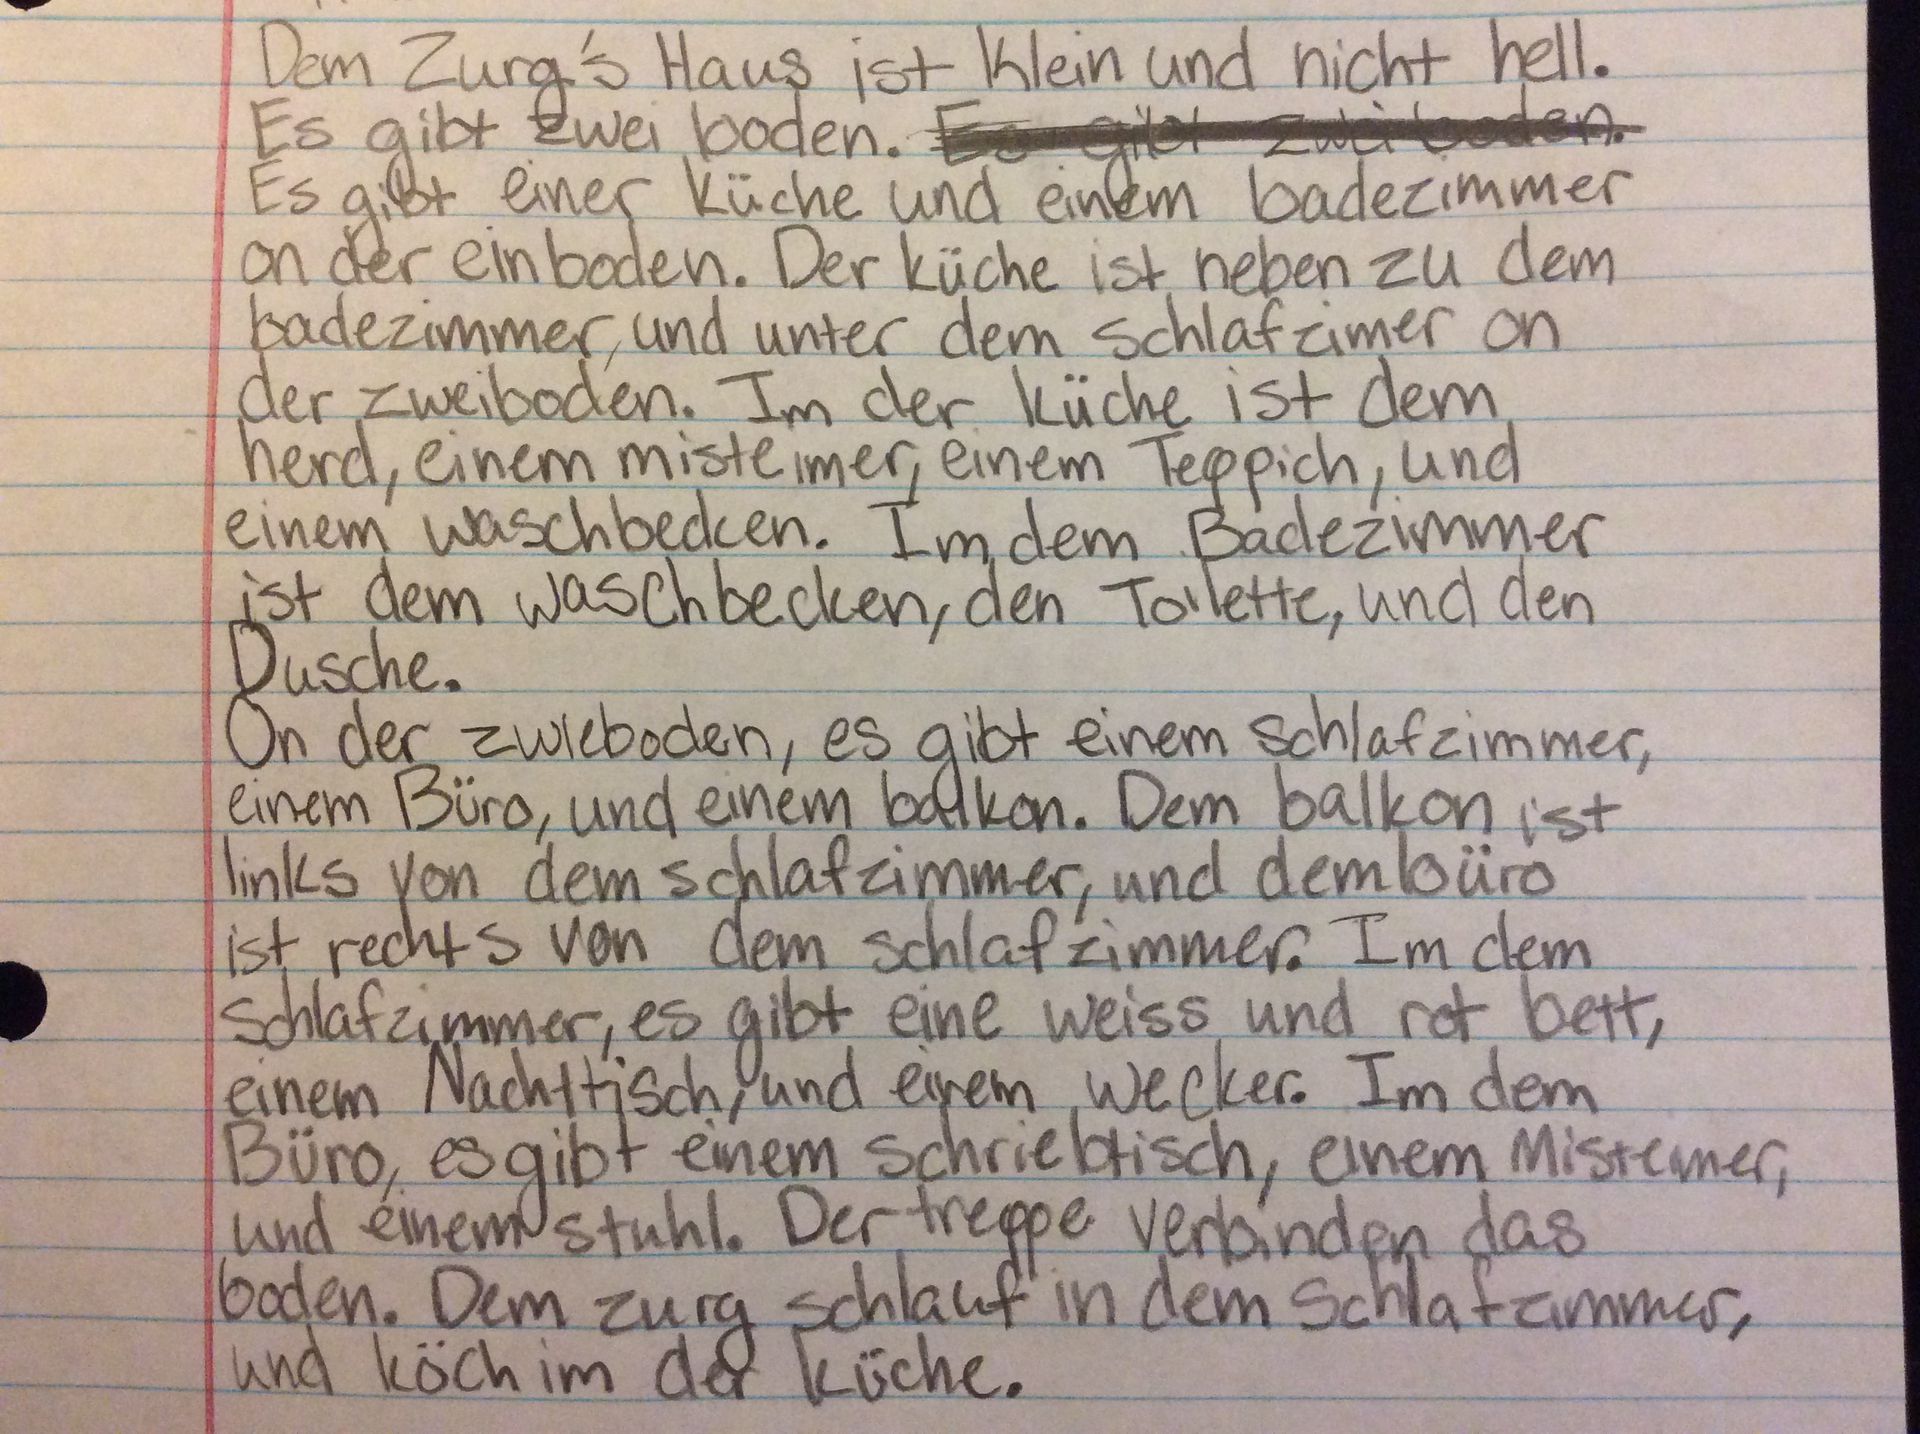 Dem Zurg's Haus ist Klein und nicht hell.
Es gibt zwei boden. Es gibt zwei boden.
Es gibt einer küche und einem badezimmer
on der einboden. Der küche ist neben zu dem
badezimmer, und unter dem schlafzimer on
der zweiboden. Im der küche ist dem
herd, einem misteimer, einem Teppich, und
einem waschbecken. Im dem Badezimmer
ist dem waschbecken, den Toilette, und den
Dusche.
On der zwieboden, es gibt einem schlafzimmer,
einem Büro, und einem balkon. Dem balkon ist
links von dem schlafzimmer, und dem büro
ist rechts von dem schlafzimmer. Im dem
schlafzimmer, es gibt eine weiss und rot bett,
einem Nachttisch, und einem wecker. Im dem
Büro, es gibt einem schriebtisch, einem Misteimer,
und einem stuhl. Der treppe verbinden das
boden. Dem zurg schlauf in dem schlafzimmer,
und köch im der küche.